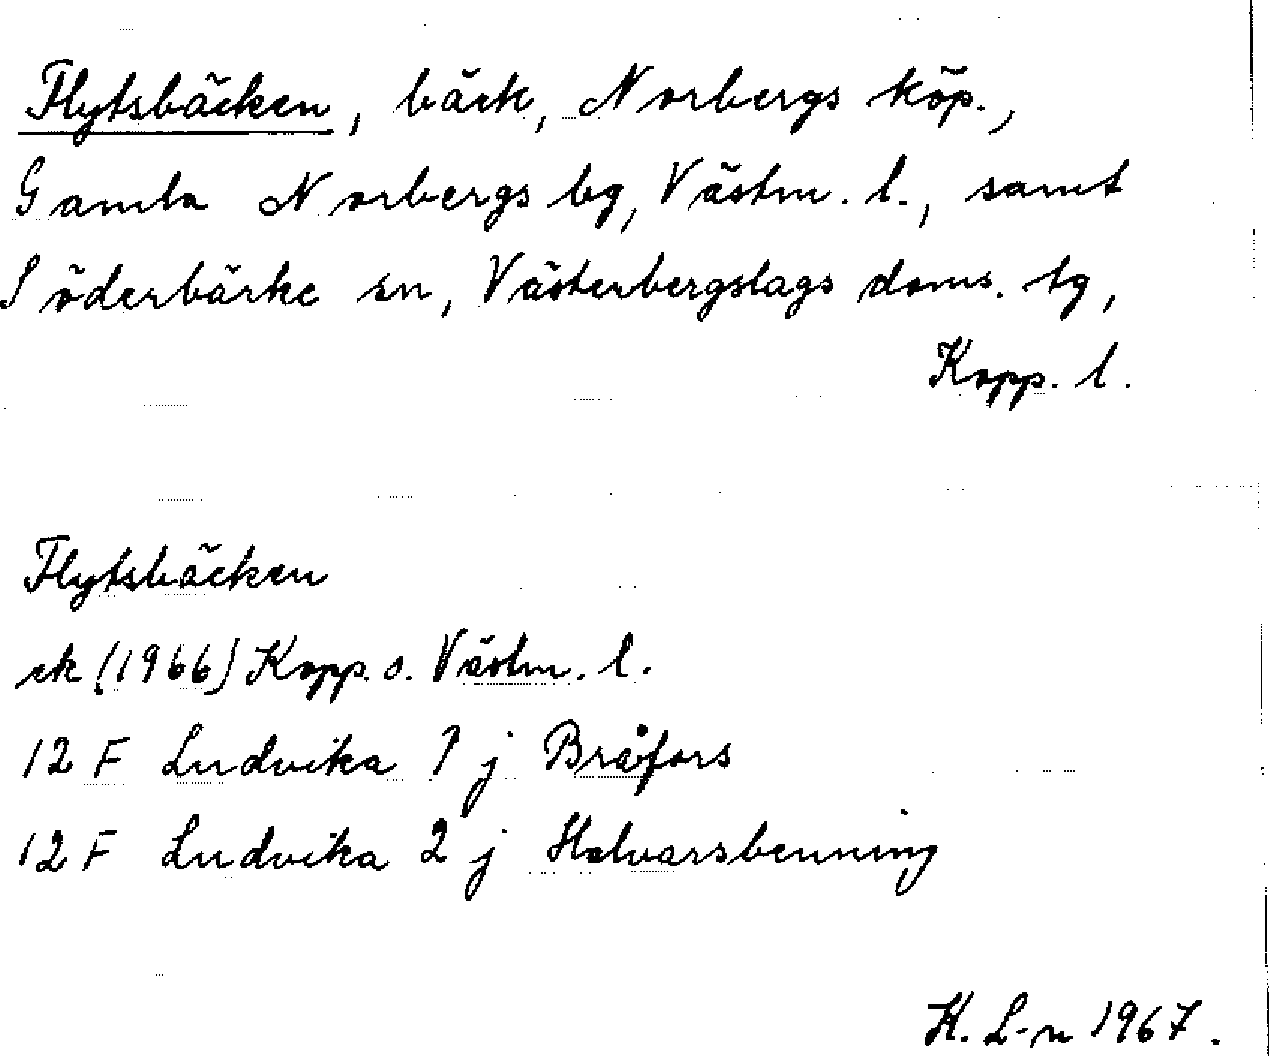 Flytsbäcken, bäck, Norbergs köp.,
Gamla Norbergs bg, Västm. l., samt
Söderbärke sn, Västerbergslags doms. tg,
Kopp. l.
Flytsbäcken
ek (1966) Kopp. o. Västm. l.
12 F Ludvika 1 j Bråfors
12 F Ludvika 2 j Halvarsbenning
K. L-n 1967.